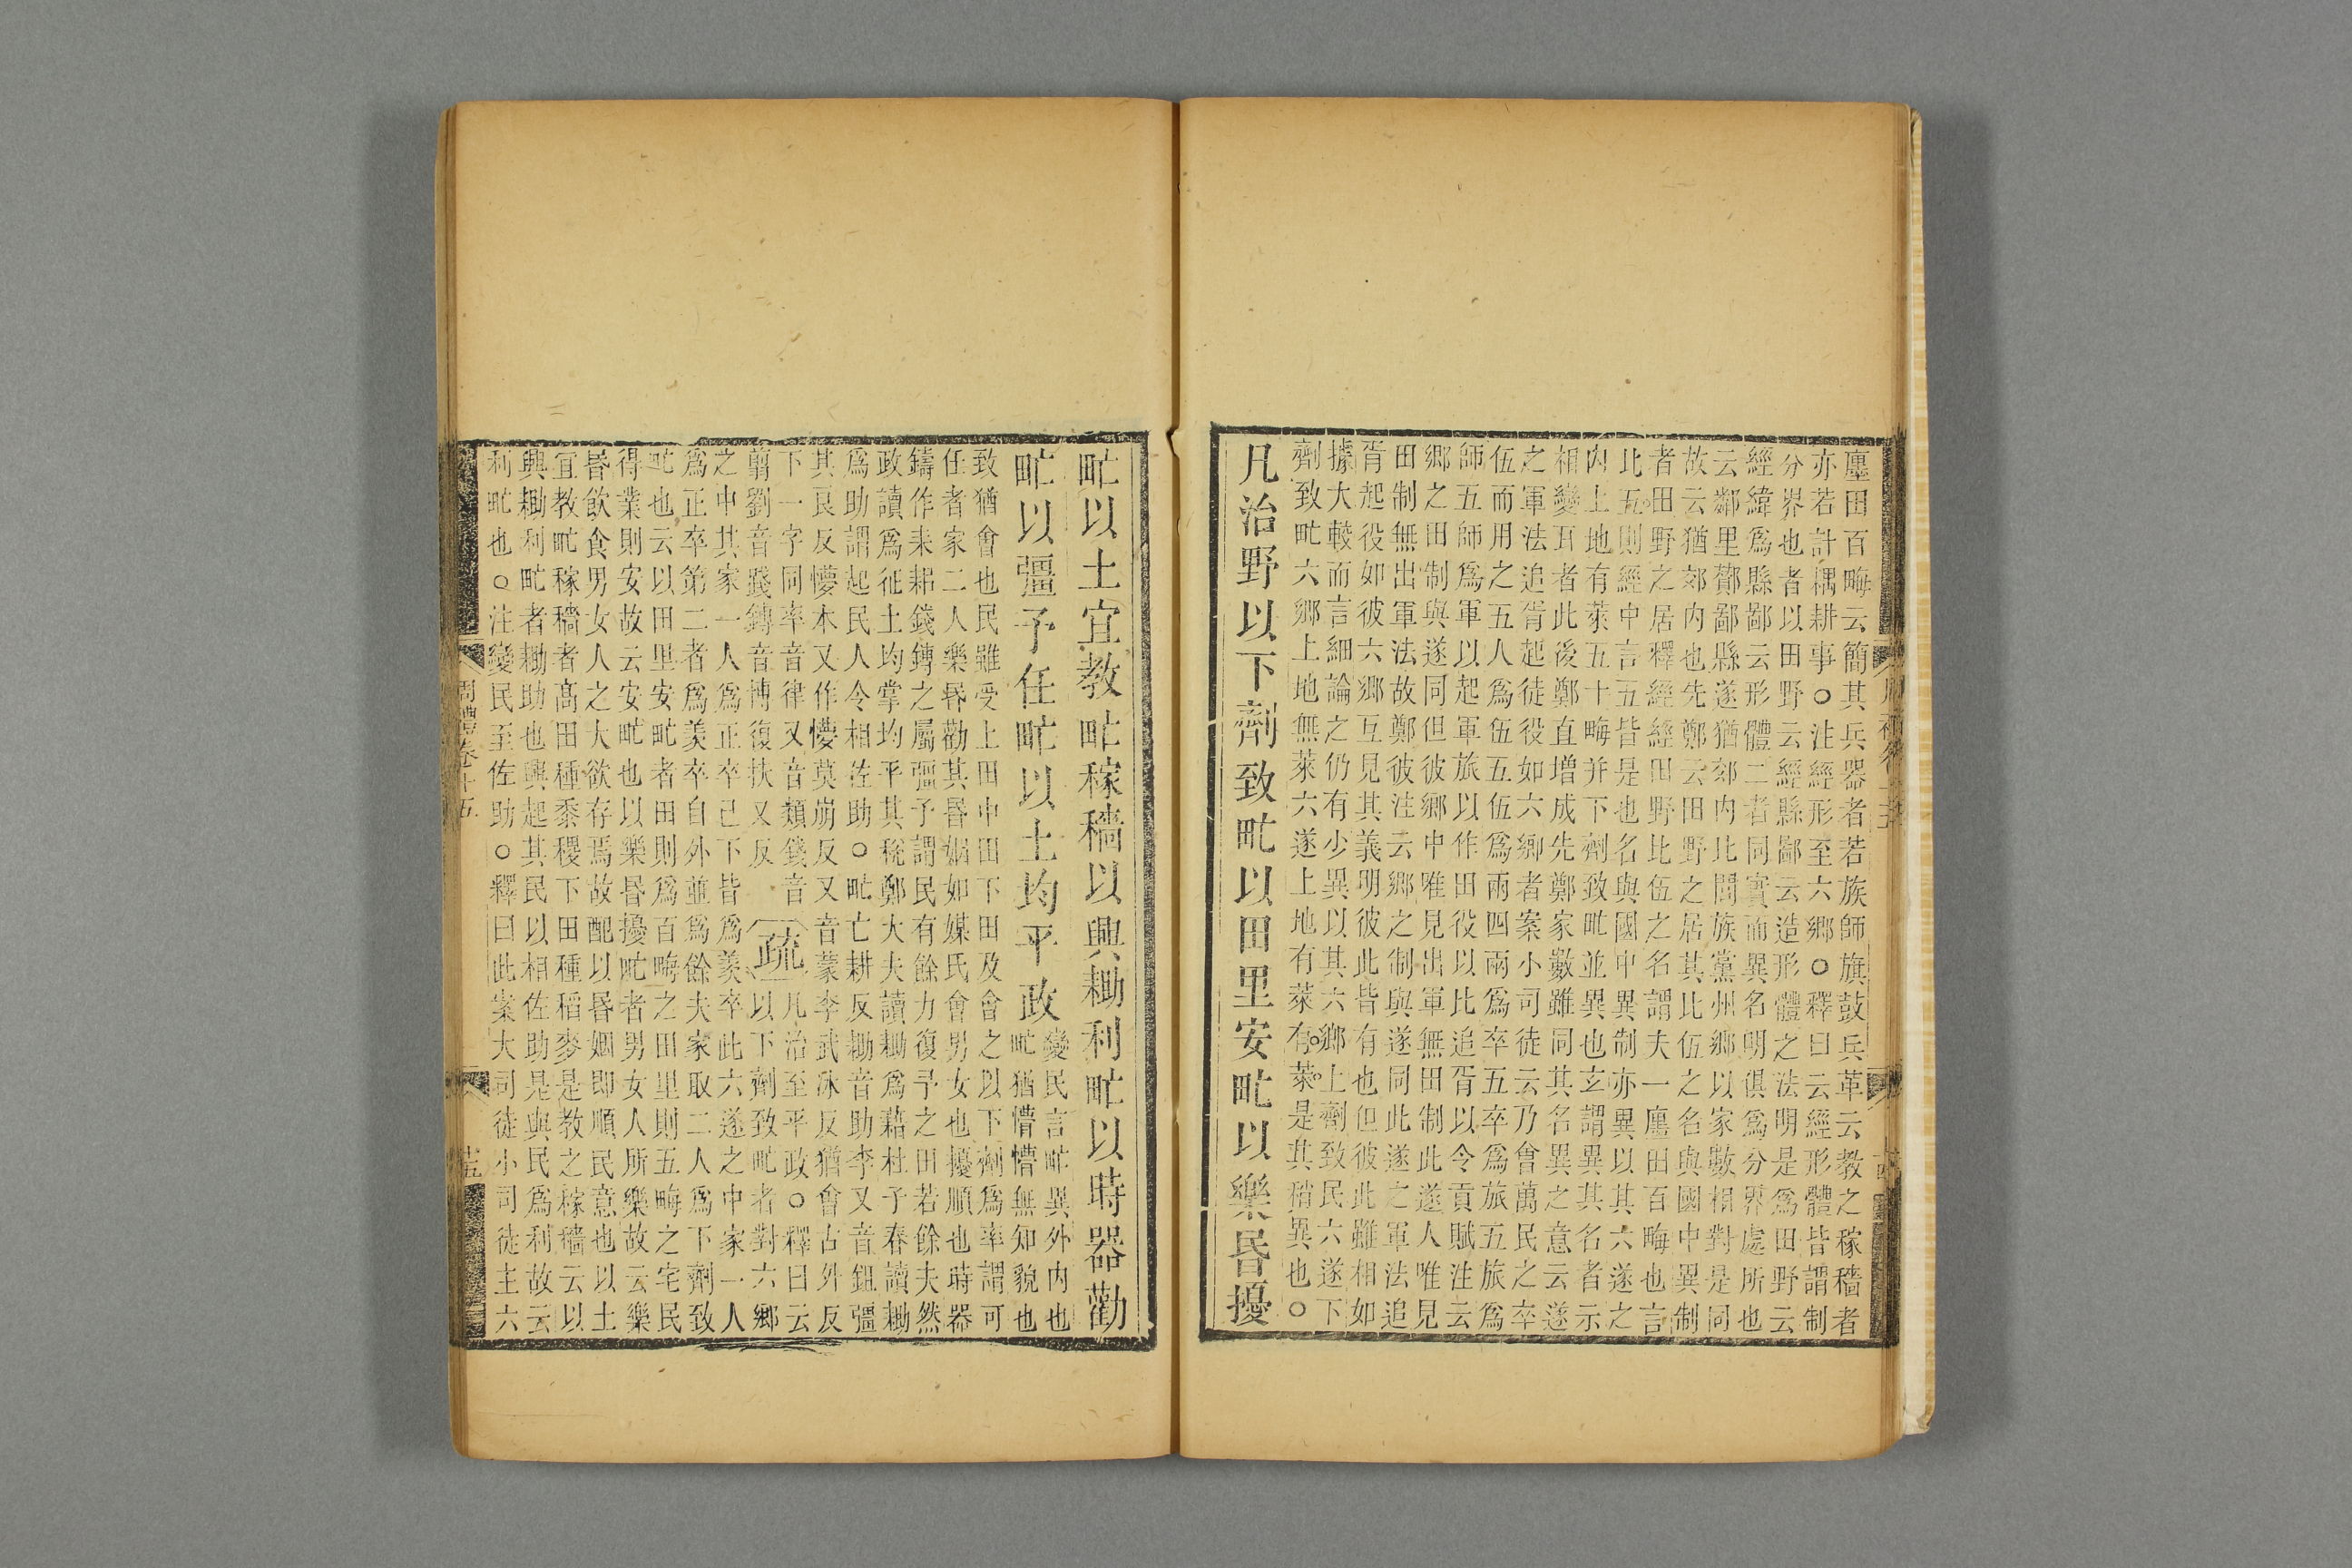 廛田百畮云簡其兵器者若族師旗鼓兵革云教之稼穡者
亦若計耦耕事○注經形至六鄉○釋曰云經形體皆謂制
分界也者以田野云經縣鄙云造形體之法明是爲田野云
經緯爲縣鄙云形體二者同實而異名明俱爲分界處所也
云鄰里酇鄙縣遂猶郊内比閭族黨州鄉以家數相對是同
故云猶郊内也先鄭云田野之居其比伍之名與國中異制
者田野之居釋經經田野比伍之名謂夫一廛田百畮也言
比五則經中言五皆是也名與國中異制亦異以其六遂之
内上地有萊五十畮并下劑致甿並異也玄謂異其名者示
相變耳者此後鄭直增成先鄭家數雖同其名異之意云遂
之軍法追胥起徒役如六鄉者案小司徒云乃會萬民之卒
伍而用之五人爲伍五伍爲兩四兩爲卒五卒爲旅五旅爲
師五師爲軍以起軍旅以作田役以比追胥以令貢賦注云
鄉之田制與遂同但彼鄉中唯見出軍無田制此遂人唯見
田制無出軍法故鄭彼注云鄉之制與遂同此遂之軍法追
胥起役如彼六鄉互見其義明彼此皆有也但彼此雖相如
據大較而言細論之仍有少異以其六鄉上劑致民六遂下
劑致甿六鄉上地無萊六遂上地有萊有萊是其稍異也○
凡治野以下劑致甿以田里安甿以樂昬擾
甿以土宜教甿稼穡以興耡利甿以時器勸
甿以彊予任甿以土均平政
變民言甿異外内也
甿猶懵懵無知貌也
致猶會也民雖受上田中田下田及會之以下劑爲率謂可
任者家二人樂昬勸其昬姻如媒氏會男女也擾順也時器
鑄作耒耜錢鎛之屬彊予謂民有餘力復予之田若餘夫然
政讀爲征土均掌均平其稅鄭大夫讀耡爲藉杜子春讀耡
爲助謂起民人令相佐助○甿亡耕反耡音助李又音鉏彊
其良反懮本又作懮莫崩反又音蒙李武冰反猶會古外反
下一字同率音律又音類錢音
翦劉音踐鎛音博復扶又反
疏
凡治至平政○釋曰云
以下劑致甿者對六鄉
之中其家一人爲正卒已下皆爲羨卒此六遂之中家一人
爲正卒第二者爲羨卒自外並爲餘夫家取二人爲下劑致
甿也云以田里安甿者田則爲百畮之田里則五畮之宅民
得業則安故云安甿也以樂昬擾甿者男女人所樂故云樂
昬飲食男女人之大欲存焉故配以昬姻即順民意也以土
宜教甿稼穡者高田種黍稷下田種稻麥是教之稼穡云以
興耡利甿者耡助也興起其民以相佐助是與民爲利故云
利甿也○注變民至佐助○釋曰此案大司徒小司徒主六
周禮卷十五